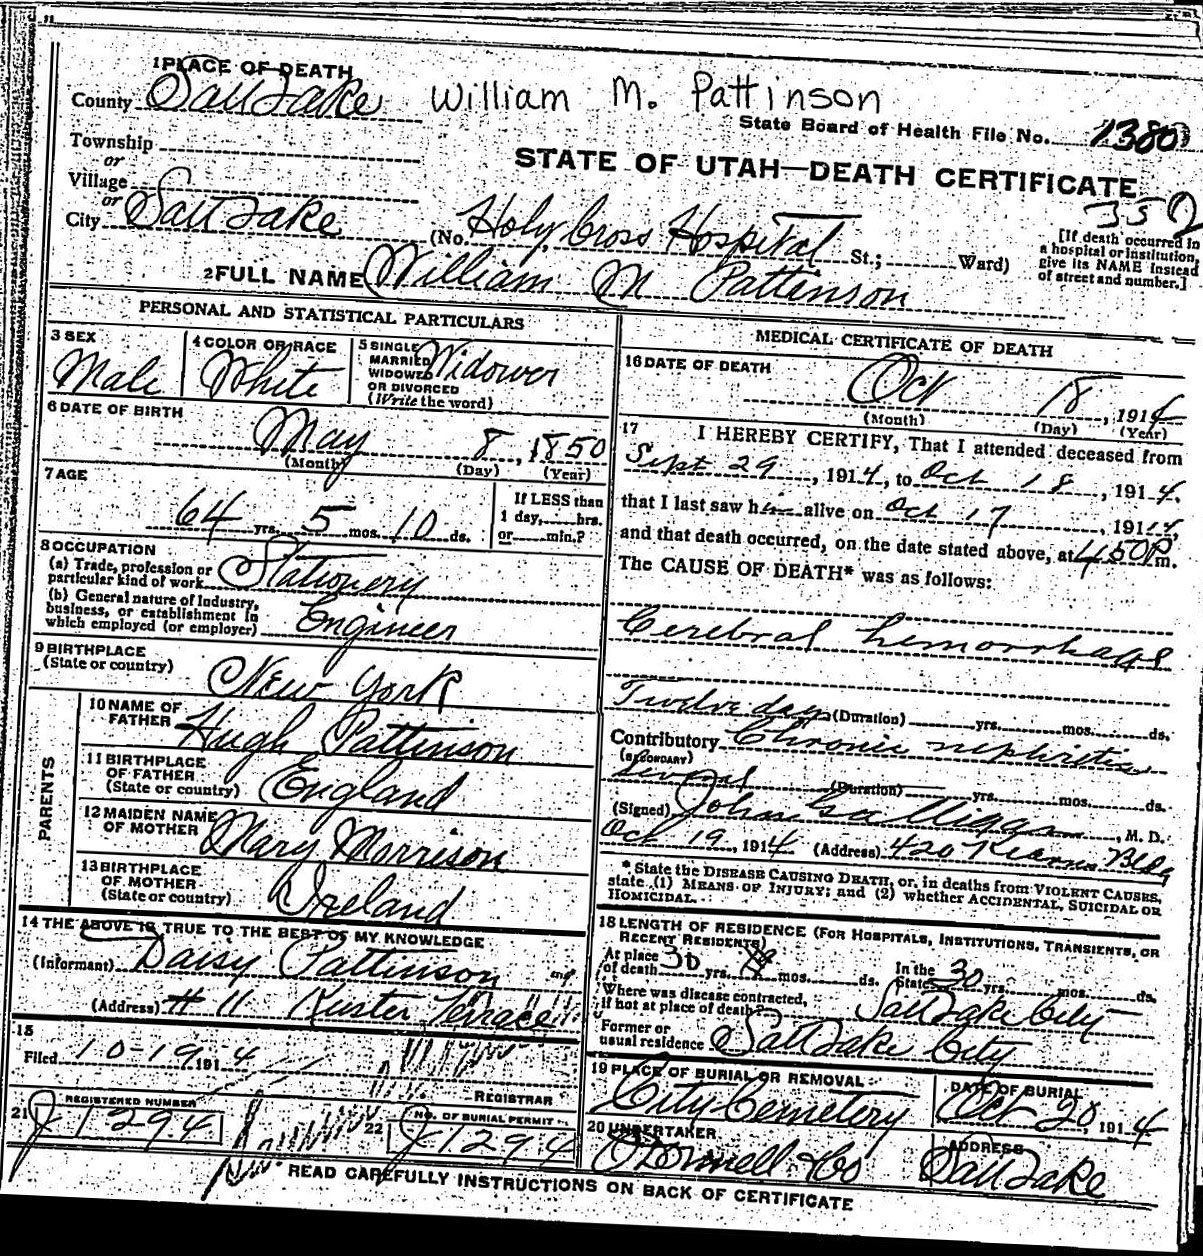 1 PLACE OF DEATH
County Salt Lake William M. Pattinson
State Board of Health File No. 1380
Township
or
Village
or
STATE OF UTAH—DEATH CERTIFICATE
352
City Salt Lake (No. Holy Cross Hospital St.; Ward)
[If death occurred in a hospital or institution, give its NAME instead of street and number.]
2 FULL NAME William M Pattinson
PERSONAL AND STATISTICAL PARTICULARS
3 SEX
Male
4 COLOR OR RACE
White
5 SINGLE
MARRIED
WIDOWED
OR DIVORCED
(Write the word)
Widower
6 DATE OF BIRTH
May 8, 1850
(Month) (Day) (Year)
7 AGE
64 yrs. 5 mos. 10 ds.
If LESS than
1 day, hrs.
or min.?
8 OCCUPATION
(a) Trade, profession or
particular kind of work Stationery
(b) General nature of Industry,
business, or establishment in
which employed (or employer) Engineer
9 BIRTHPLACE
(State or country) New York
PARENTS
10 NAME OF
FATHER Hugh Pattinson
11 BIRTHPLACE
OF FATHER
(State or country) England
12 MAIDEN NAME
OF MOTHER Mary Morrison
13 BIRTHPLACE
OF MOTHER
(State or country) Ireland
14 THE ABOVE IS TRUE TO THE BEST OF MY KNOWLEDGE
(Informant) Daisy Pattinson
(Address) # 11 Kuster Terrace
15
Filed 10-19 1914
REGISTRAR
21 REGISTERED NUMBER
J 1294
22 NO. OF BURIAL PERMIT
J 1294
MEDICAL CERTIFICATE OF DEATH
16 DATE OF DEATH
Oct 18, 1914
(Month) (Day) (Year)
17 I HEREBY CERTIFY, That I attended deceased from
Sept 29, 1914, to Oct 18, 1914.
that I last saw him alive on Oct 17, 1914,
and that death occurred, on the date stated above, at 450 P. m.
The CAUSE OF DEATH* was as follows:
Cerebral hemorrhage
Twelve days (Duration) yrs. mos. ds.
Contributory Chronic nephritis
(SECONDARY)
several (Duration) yrs. mos. ds.
(Signed) John Galligan, M. D.
Oct 19, 1914 (Address) 420 Kearns Bldg
* State the DISEASE CAUSING DEATH, or, in deaths from VIOLENT CAUSES,
state (1) MEANS OF INJURY; and (2) whether ACCIDENTAL, SUICIDAL OR
HOMICIDAL.
18 LENGTH OF RESIDENCE (FOR HOSPITALS, INSTITUTIONS, TRANSIENTS, OR
RECENT RESIDENTS)
At place
of death 30 yrs. mos. ds. In the
State 30 yrs. mos. ds.
Where was disease contracted,
if not at place of death? Salt Lake City
Former or
usual residence Salt Lake City
19 PLACE OF BURIAL OR REMOVAL
City Cemetery
DATE OF BURIAL
Oct 20, 1914
20 UNDERTAKER
O'Donnell & Co
ADDRESS
Salt Lake
READ CAREFULLY INSTRUCTIONS ON BACK OF CERTIFICATE